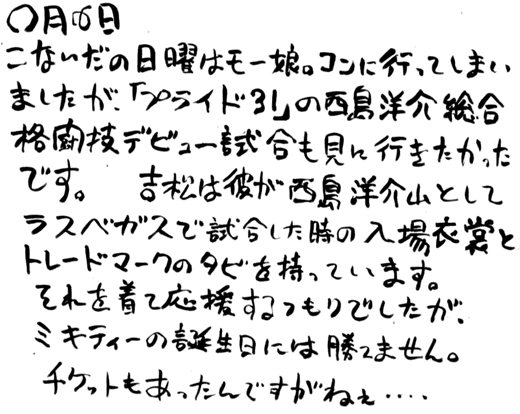 〇月〇日
こないだの日曜はモー娘。コンに行ってしまい
ましたが、「プライド31」の西島洋介総合
格闘技デビュー試合も見に行きたかった
です。 吉松は彼が西島洋介山として
ラスベガスで試合した時の入場衣裳と
トレードマークのタビを持っています。
それを着て応援するつもりでしたが、
ミキティーの誕生日には勝てません。
チケットもあったんですがねぇ・・・・